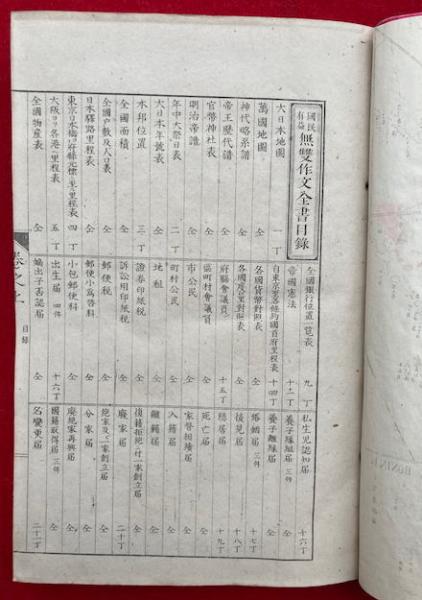 國民有益 無雙作文全書目錄
大日本地圖 一丁
萬國地圖 仝
神代略系譜 仝
帝王歷代譜 仝
官幣神社表 仝
明治帝譜 仝
年中大祭日表 二丁
大日本年號表 仝
本邦位置 三丁
全國面積 仝
全國户數及人口表 仝
日本驛路里程表 仝
東京日本橋ヨリ府縣元標ニ至ル里程表 四丁
大阪ヨリ各港ヘ里程表 五丁
全國物産表 仝
全國銀行位置一覧表 九丁
帝國憲法 十二丁
自東京至各條約國首府里程表 十四丁
各國貨幣對照表 仝
各國度量對照表 仝
府縣會議員 十五丁
區町村會議員 仝
市公民 仝
町村公民 仝
地租 仝
證券印紙税 仝
訴訟用印紙税 仝
郵便税 仝
郵便小爲替料 仝
小包郵便料 仝
出生届 四件 仝
嫡出子否認届 十六丁
私生兒認知届 十六丁
養子縁組届 三件 仝
養子離縁届 仝
婚姻届 三件 十七丁
後見届 十八丁
隠居届 十九丁
死亡届 仝
家督相續届 仝
入籍届 仝
離籍届 仝
復籍拒絶ニ付一家創立届 仝
廢家届 二十丁
絶家及ビ一家創立届 仝
分家届 仝
廢絶家再興届 仝
國籍取得届 三件 仝
名變更届 二十一丁
目録